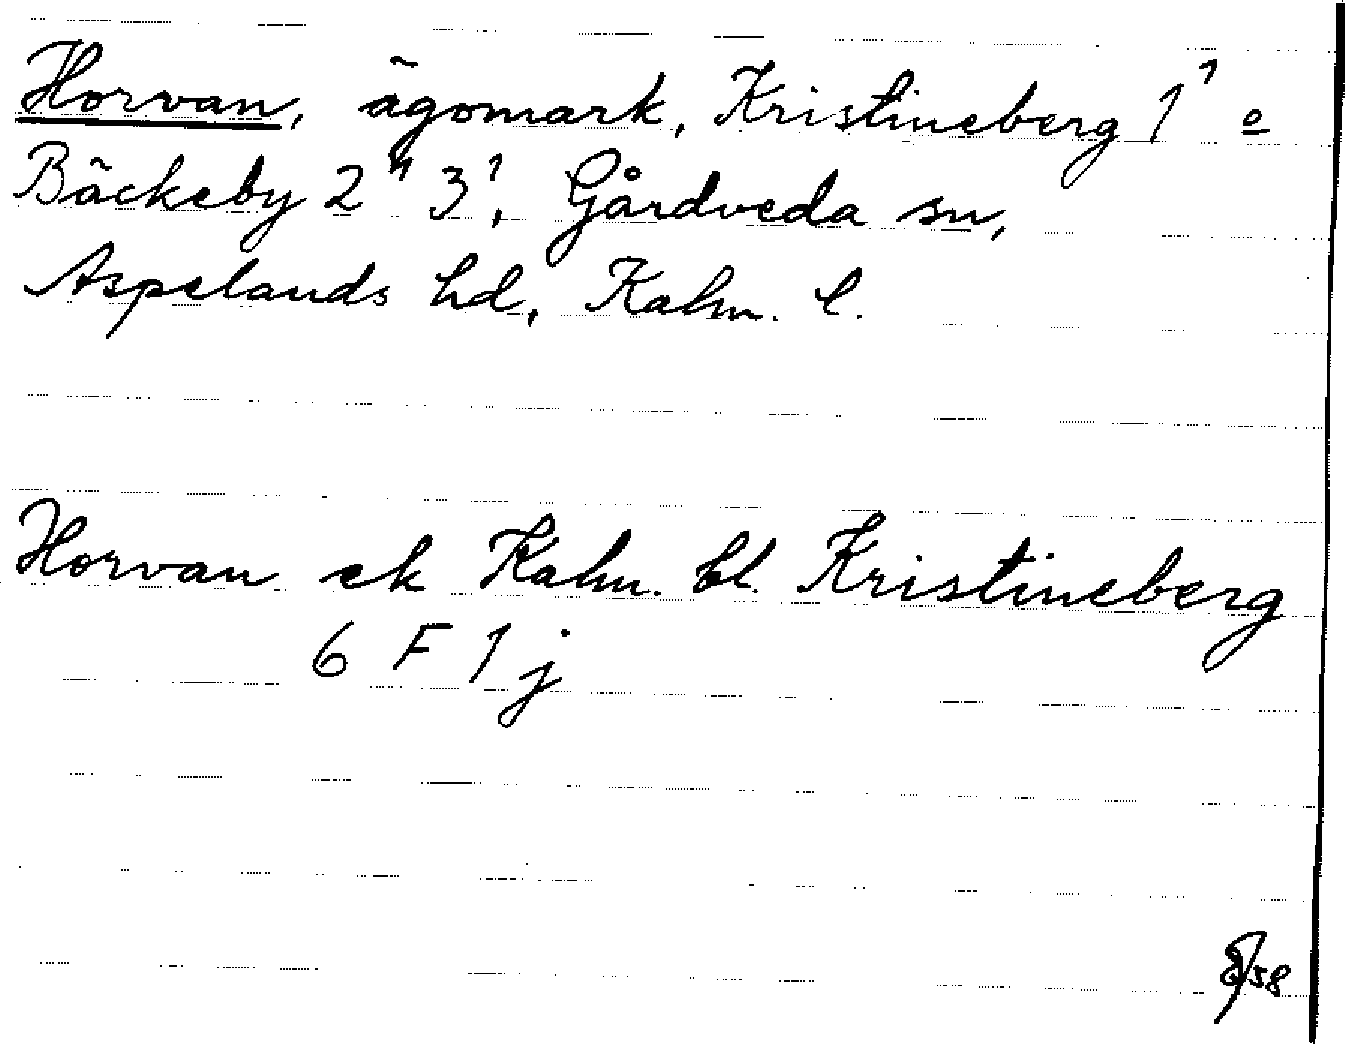 Horvan, ägomark, Kristineberg 1¹ o
Bäckeby 2⁴ 3¹, Gårdveda sn,
Aspelands hd, Kalm. l.
Horvan ek Kalm. bl. Kristineberg
6 F 1 j
58